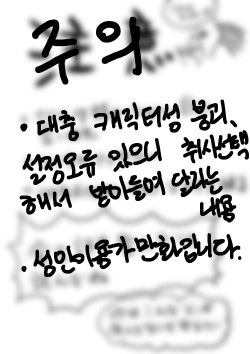 주의
• 대충 캐릭터성 붕괴,
설정오류 있으니 취사선택
해서 받아들여 달라는
내용
• 성인이용가 만화입니다.